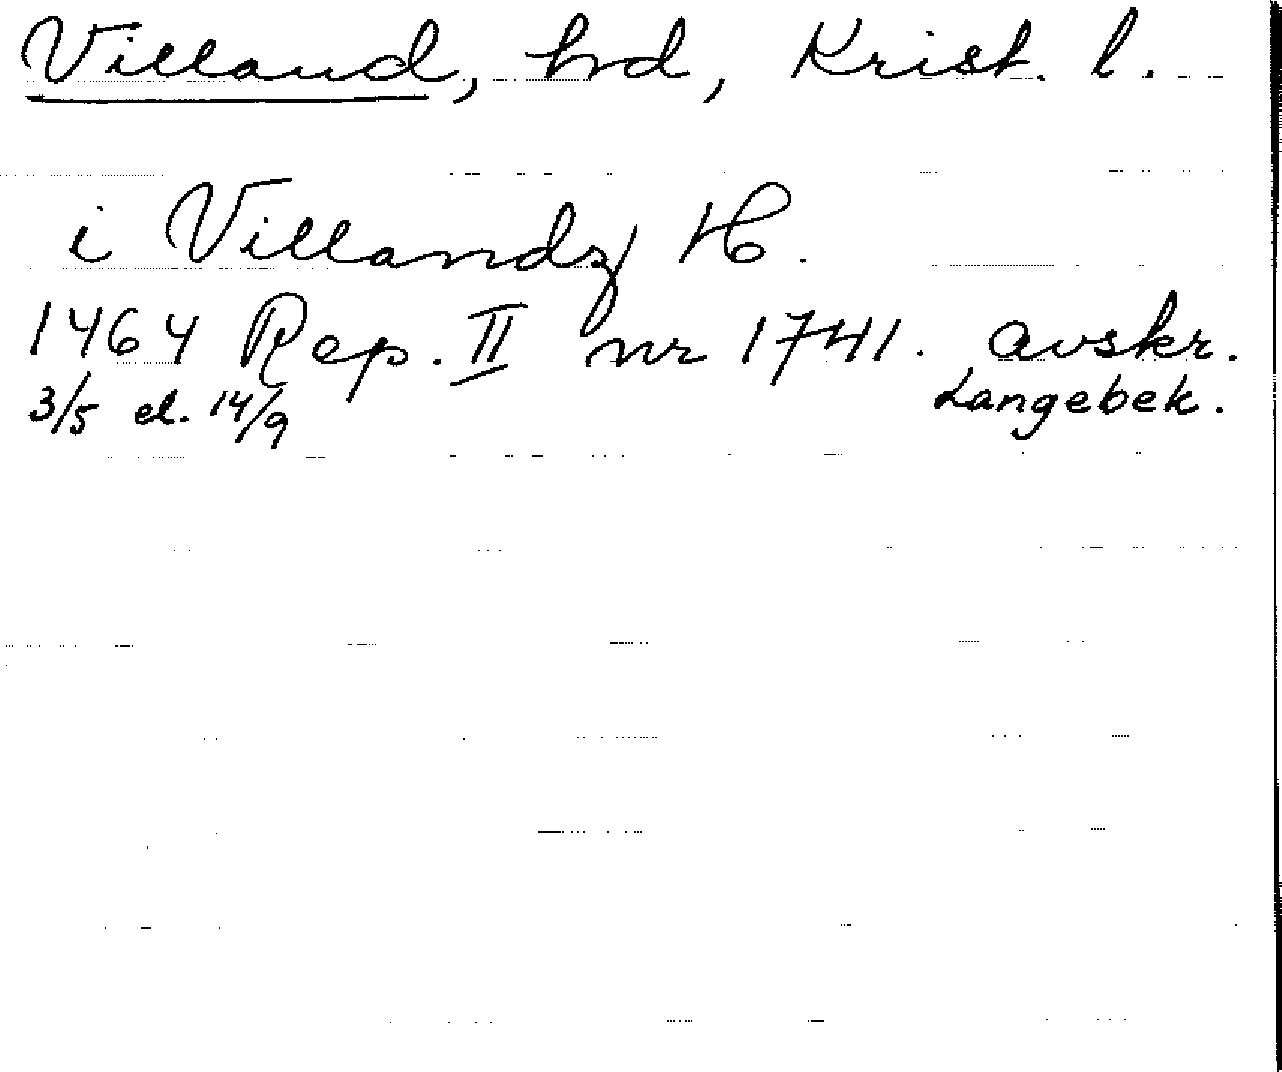 Villand, hd, Krist. l.
i Villandz H.
1464 Rep. II nr 1741. avskr.
3/5 el. 14/9 Langebek.